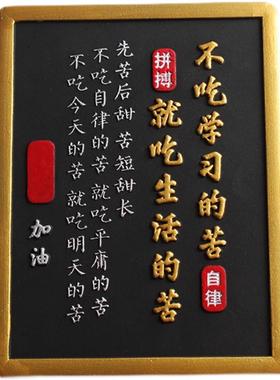 不吃学习的苦
自律
拼搏
就吃生活的苦
先苦后甜 苦短甜长
不吃自律的苦 就吃平庸的苦
不吃今天的苦 就吃明天的苦
加油